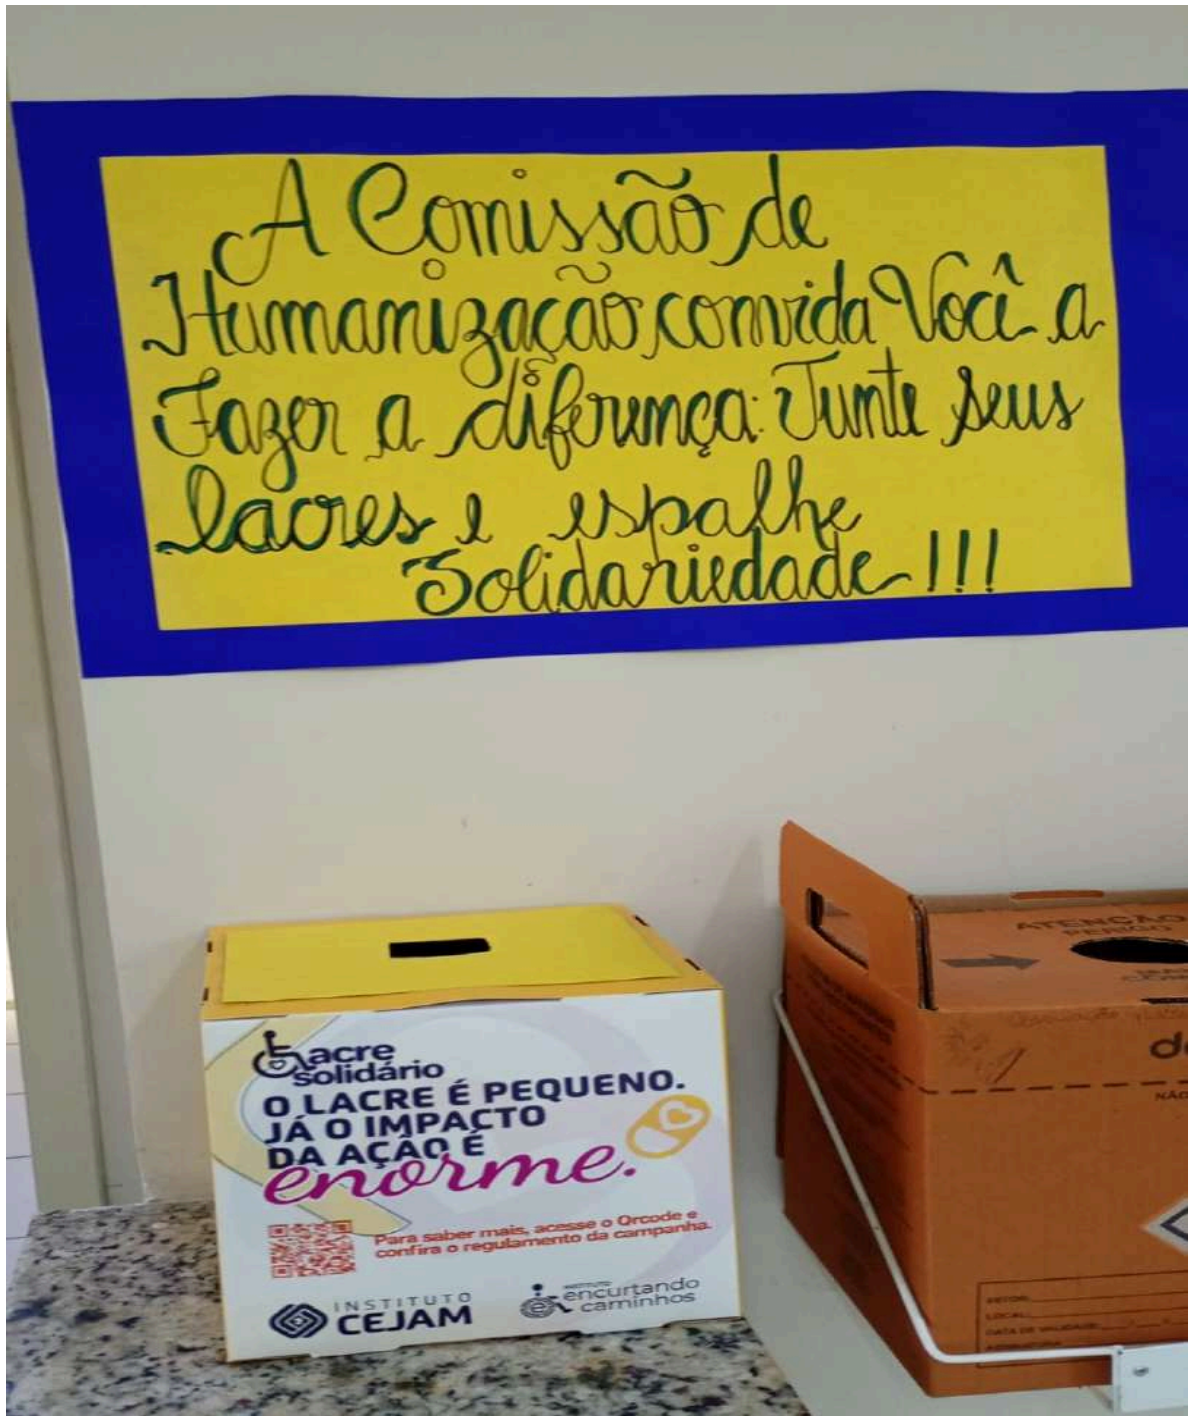 A Comissão de
Humanização convida Você a
Fazer a diferença: Junte seus
lacres e espalhe
Solidariedade!!!
Lacre
solidário
O LACRE É PEQUENO.
JÁ O IMPACTO
DA AÇÃO É
enorme.
Para saber mais, acesse o Qrcode e
confira o regulamento da campanha.
INSTITUTO
CEJAM
INSTITUTO
encurtando
caminhos
ATENÇÃO
PERIGO
NÃO
SETOR:
LOCAL:
DATA DE VALIDADE: